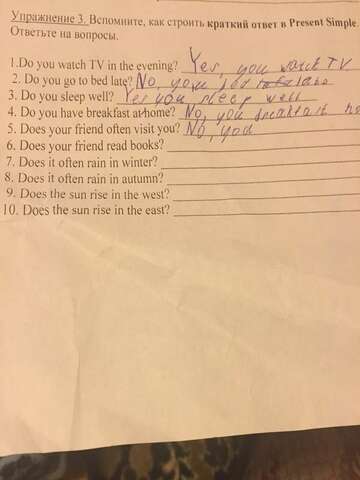 Упражнение 3. Вспомните, как строить краткий ответ в Present Simple.
Ответьте на вопросы.
1.Do you watch TV in the evening? Yes, you watch TV
2. Do you go to bed late? No, you
3. Do you sleep well? Yes you sleep well
4. Do you have breakfast at home? No, you
5. Does your friend often visit you? No, you
6. Does your friend read books?
7. Does it often rain in winter?
8. Does it often rain in autumn?
9. Does the sun rise in the west?
10. Does the sun rise in the east?